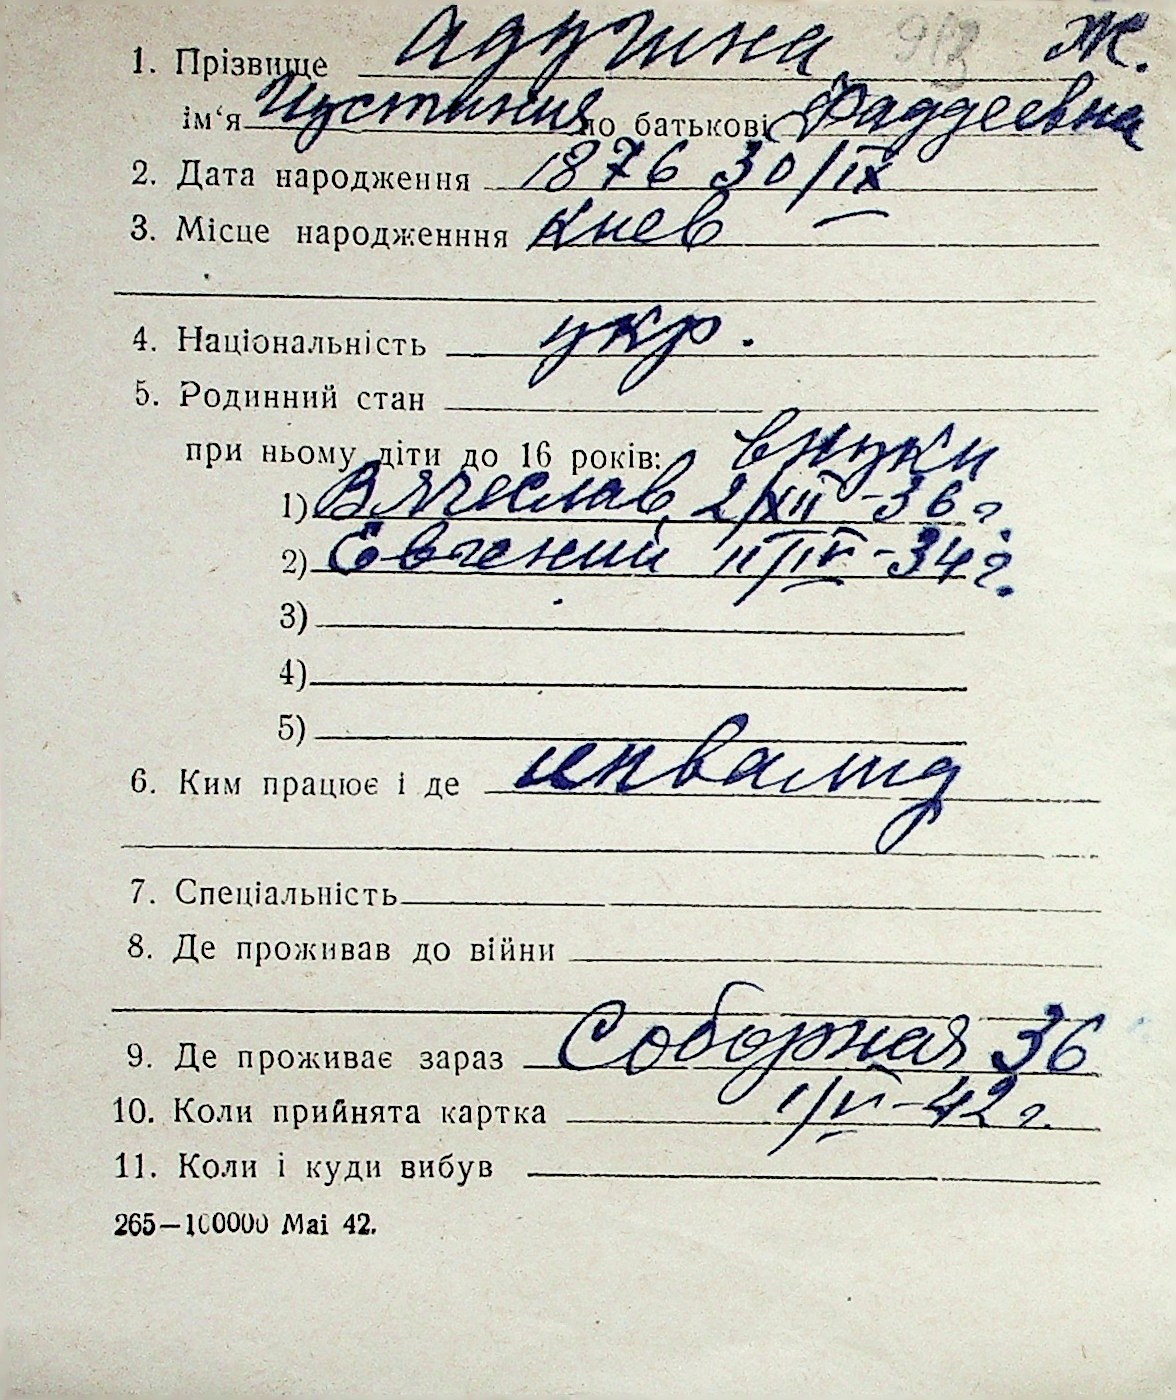 1. Прізвище Адушна 913 Ж.
ім‘я Иустиния по батькові Фаддеевна
2. Дата народження 1876 30/IX
3. Місце народженння Киев
4. Національність укр.
5. Родинний стан
при ньому діти до 16 років: внуки
1) Вячеслав, 2/XII-36 г.
2) Евгений 11/IV-34 г.
3)
4)
5)
6. Ким працює і де инвалид
7. Спеціальність
8. Де проживав до війни
9. Де проживає зараз Соборная 36
10. Коли прийнята картка 1/VI-42 г.
11. Коли і куди вибув
265—100000 Mai 42.